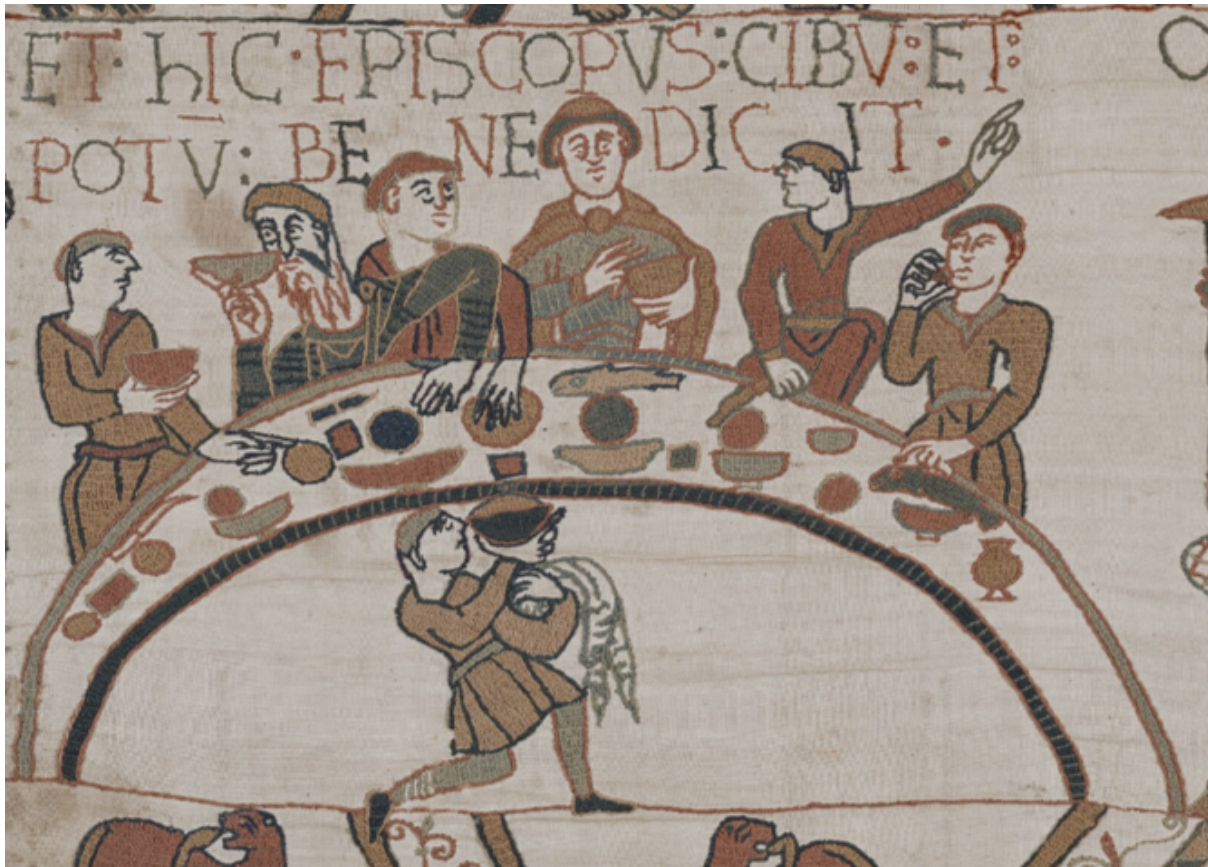 ET· hIC·EPISCOPVS:CIBV̄:ET:
POTV̄: BENEDICIT·